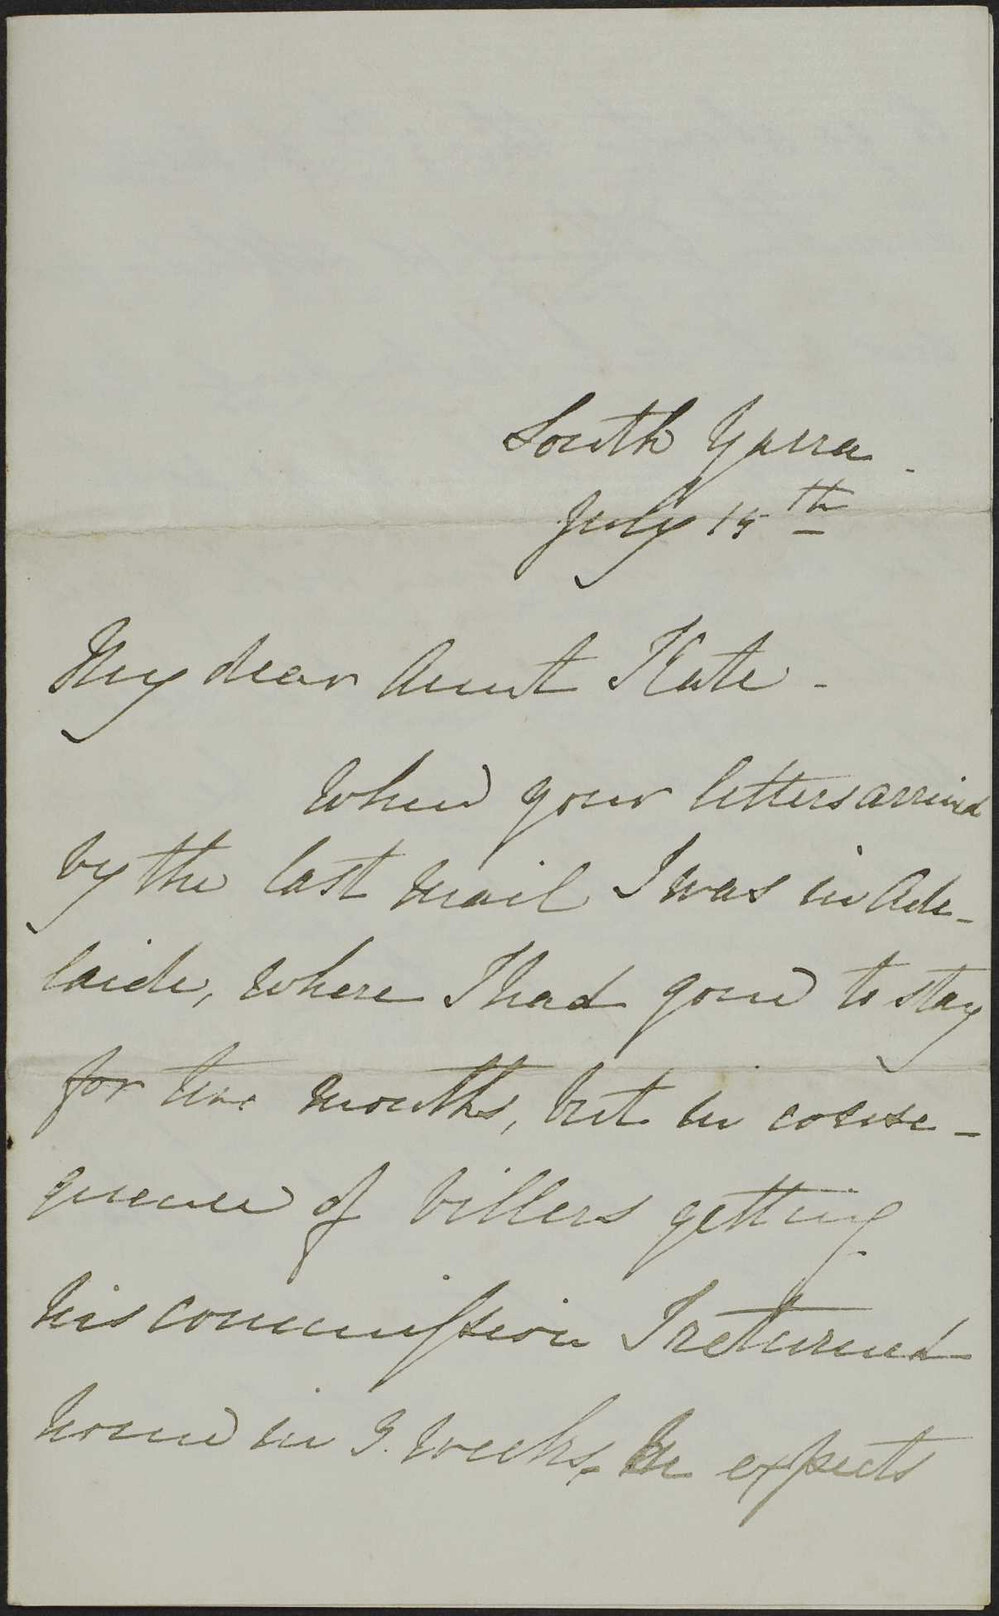 South Yarra.
July 15th
My dear Aunt Kate -
When your letters arrived
by the last mail I was in Ade-
laide, where I had gone to stay
for two months, but in conse-
quence of Villers getting
his commission I returned
home in 3. weeks. He expects